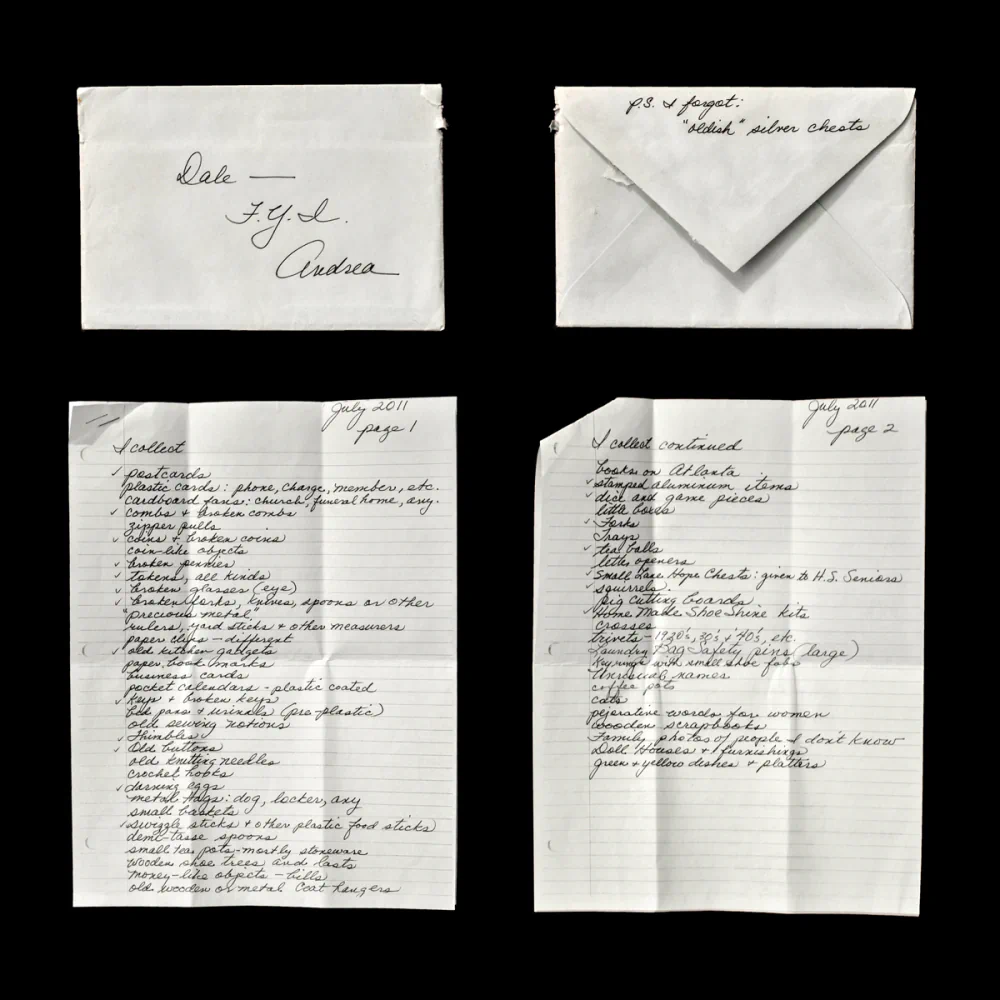 Dale —
F.Y.I.
Andrea
P.S. I forgot:
"oldish" silver chests
July 2011
page 1
I collect
✓ postcards
plastic cards: phone, charge, member, etc.
cardboard fans: church, funeral home, any.
✓ combs + broken combs
zipper pulls
✓ coins + broken coins
coin-like objects
✓ broken pennies
✓ tokens, all kinds
✓ broken glasses (eye)
✓ broken forks, knives, spoons or other
"precious metal."
rulers, yard sticks + other measurers
paper clips — different
✓ old kitchen gadgets
paper book marks
business cards
pocket calendars - plastic coated
✓ keys + broken keys
bed pans + urinals (pre-plastic)
old sewing notions
✓ Thimbles
✓ Old buttons
old knitting needles
crochet hooks
✓ darning eggs
metal tags: dog, locker, any
small baskets
✓ swizzle sticks + other plastic food sticks
demi-tasse spoons
small tea pots - mostly stoneware
wooden shoe trees and lasts
money-like objects - bills
old wooden or metal Coat hangers
July 2011
page 2
I collect continued
books on Atlanta
✓ stamped aluminum items
✓ dice and game pieces
little boxes
✓ Forks
Trays
✓ tea balls
letter openers
✓ Small Lane Hope Chests: given to H.S. Seniors
✓ squirrels.
pig cutting boards
✓ Home Made Shoe Shine kits
crosses
trivets - 1920's, 30's, + 40's, etc.
Laundry Bag Safety pins (large)
Key rings with small shoe fobs
Unusual names
coffee pots
cats
pejorative words for women
wooden scrapbooks
Family photos of people I don't know
Doll Houses + furnishings
green + yellow dishes + platters